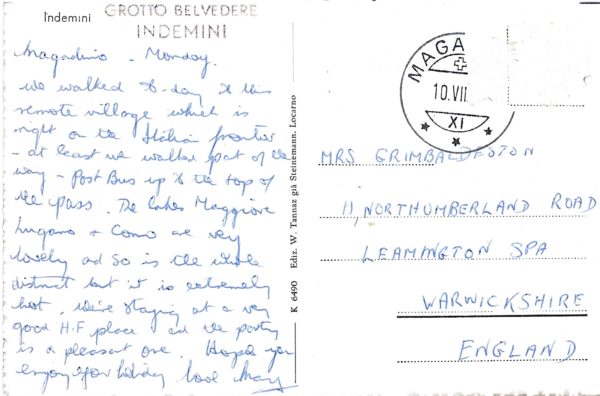 Indemini
GROTTO BELVEDERE
INDEMINI
Magadino - Monday.
We walked to-day to this
remote village which is
right on the Italian frontier
- at least we walked part of the
way - Post Bus up to the top of
the pass. The lakes Maggiore
Lugano & Como are very
lovely and so is the whole
district but it is extremely
hot. We're staying at a very
good H.F place and the party
is a pleasant one. Hope you
enjoy your holiday love Mary
K 6490 Ediz. W. Tannaz già Steinemann, Locarno
MAGA
10.VII
XI
MRS GRIMBALDESTON
11, NORTHUMBERLAND ROAD
LEAMINGTON SPA
WARWICKSHIRE
ENGLAND